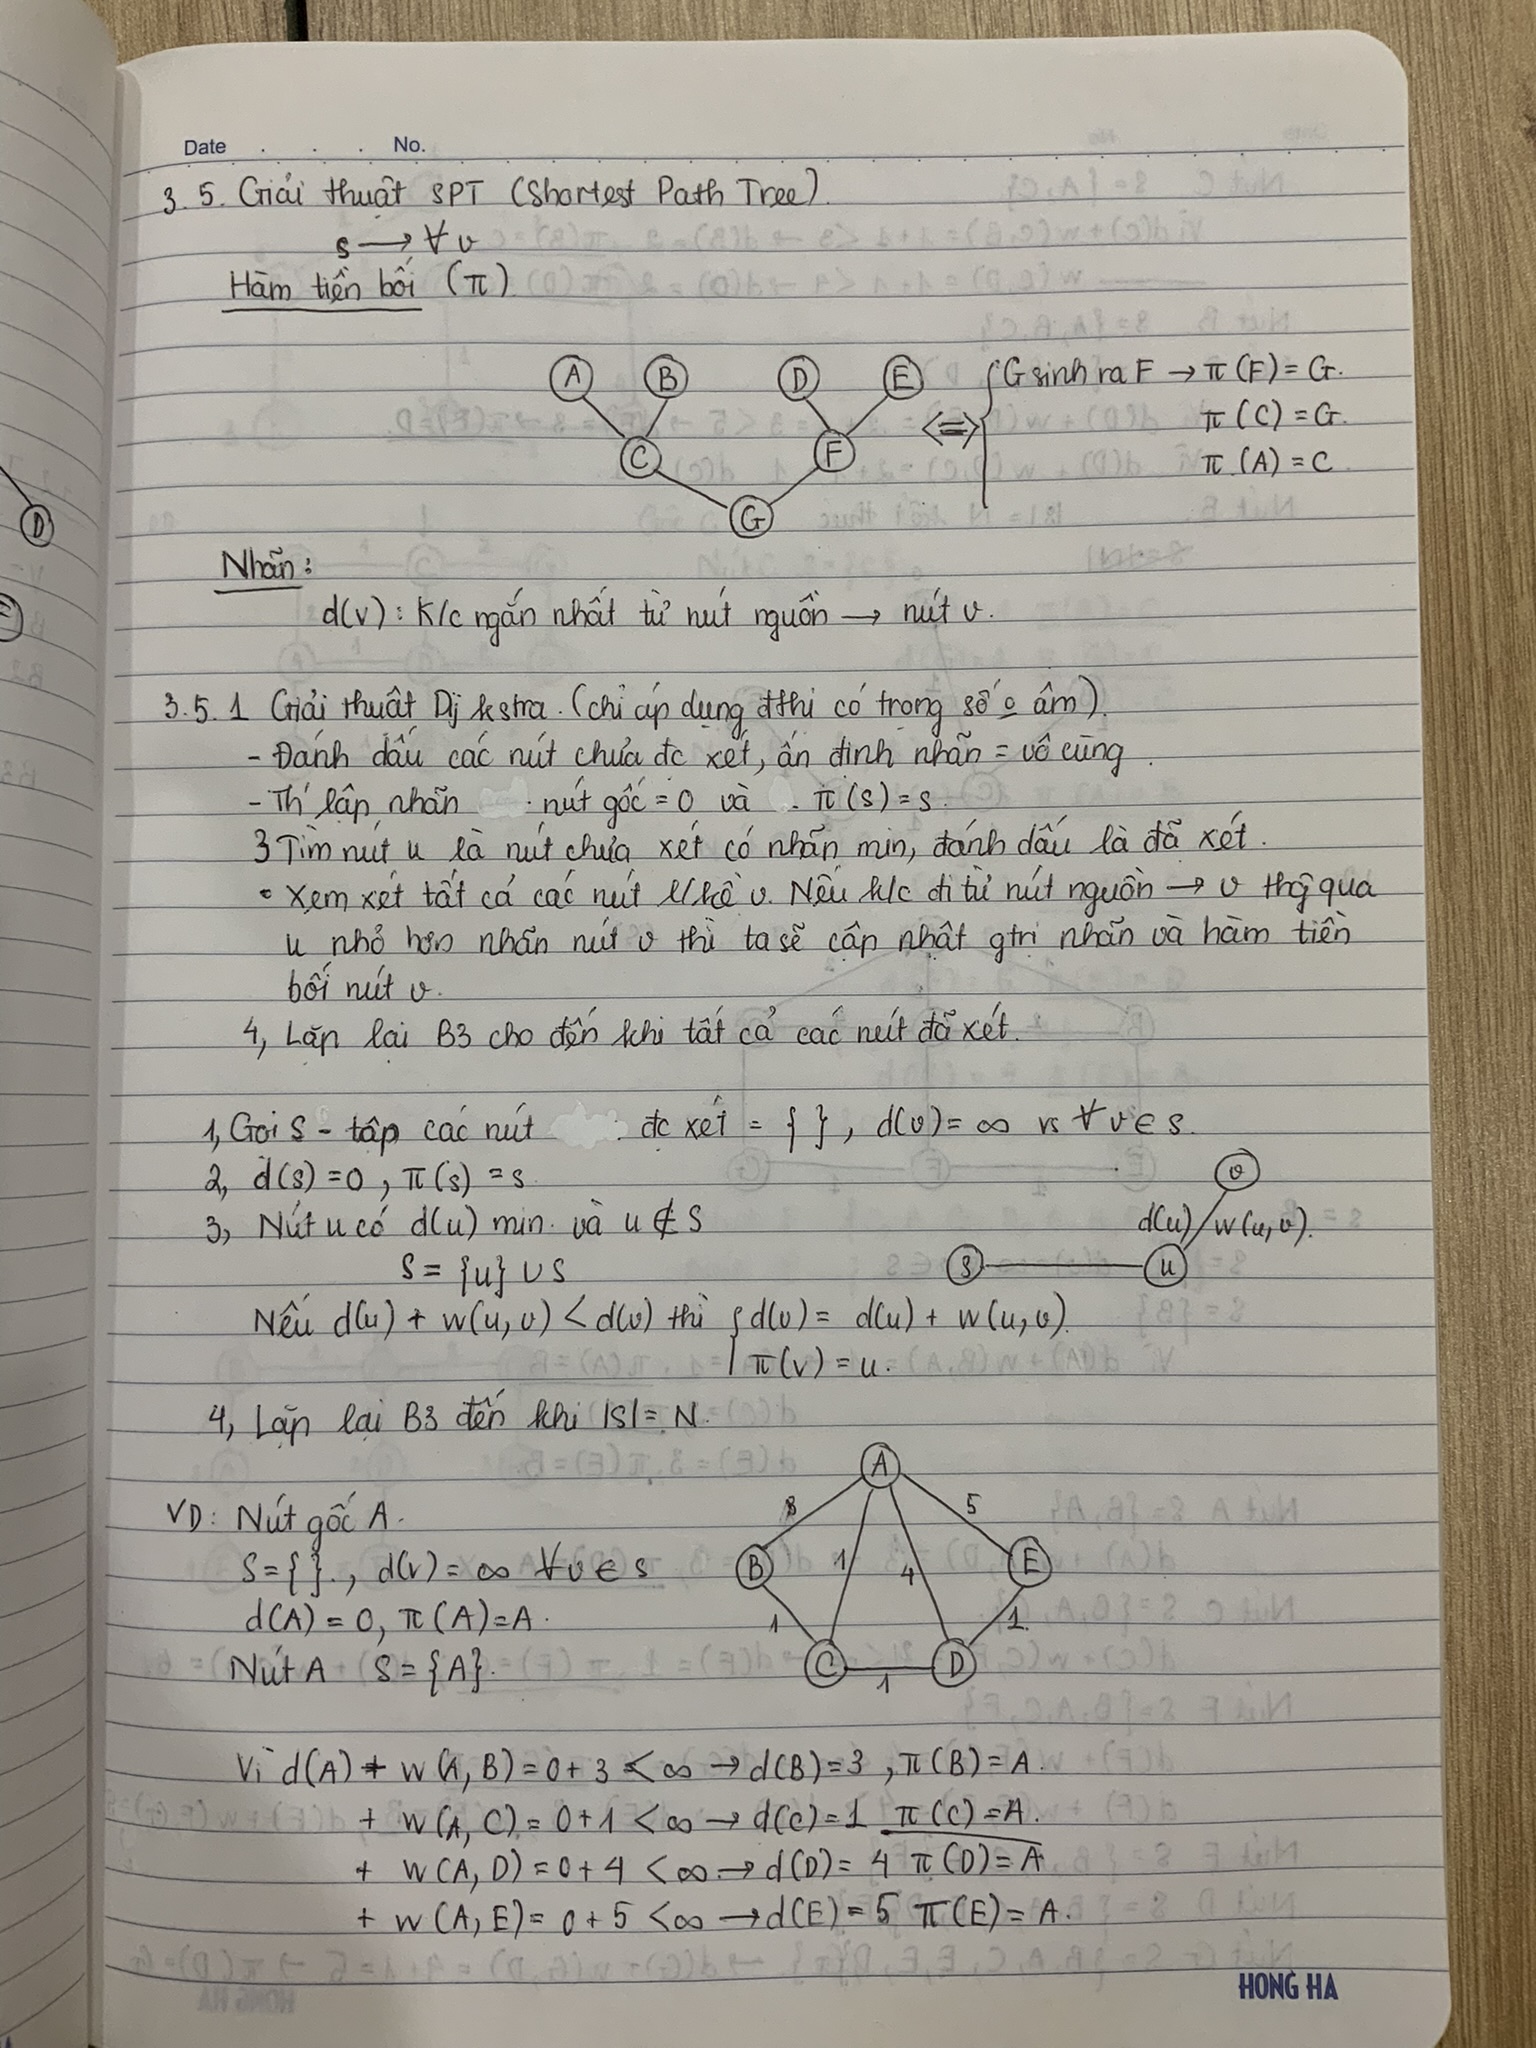 Date . . . No.
3.5. Giải thuật SPT (Shortest Path Tree).
s → ∀ v
Hàm tiền bối (π)
A B D E
C F
G
⇔ { G sinh ra F → π(F) = G.
π(C) = G.
π(A) = C
D
Nhãn:
d(v): K/c ngắn nhất từ nút nguồn → nút v.
3.5.1 Giải thuật Dijkstra. (chỉ áp dụng đthi có trọng số o âm).
- Đánh dấu các nút chưa đc xét, ấn định nhãn = vô cùng.
- Th' lập nhãn nút gốc = 0 và π(s) = s.
3 Tìm nút u là nút chưa xét có nhãn min, đánh dấu là đã xét.
• Xem xét tất cả các nút l/kề v. Nếu k/c đi từ nút nguồn → v thg qua
u nhỏ hơn nhãn nút v thì ta sẽ cập nhật gtrị nhãn và hàm tiền
bối nút v.
4, Lặp lại B3 cho đến khi tất cả các nút đã xét.
1, Gọi S - tập các nút đc xét = { }, d(v) = ∞ vs ∀ v ∈ S.
2, d(s) = 0, π(s) = s
v
3, Nút u có d(u) min và u ∉ S
d(u) w(u,v).
S = {u} ∪ S
s u
Nếu d(u) + w(u,v) < d(v) thì { d(v) = d(u) + w(u,v).
π(v) = u.
4, Lặp lại B3 đến khi |S| = N.
A
VD: Nút gốc A.
5
S = { }, d(v) = ∞ ∀ v ∈ S
B 1 4 E
d(A) = 0, π(A) = A.
1 1
Nút A S = {A}.
C D
1
Vì d(A) + w(A, B) = 0 + 3 < ∞ → d(B) = 3, π(B) = A.
+ w(A, C) = 0 + 1 < ∞ → d(C) = 1 π(C) = A.
+ w(A, D) = 0 + 4 < ∞ → d(D) = 4 π(D) = A
+ w(A, E) = 0 + 5 < ∞ → d(E) = 5 π(E) = A.
HONG HA